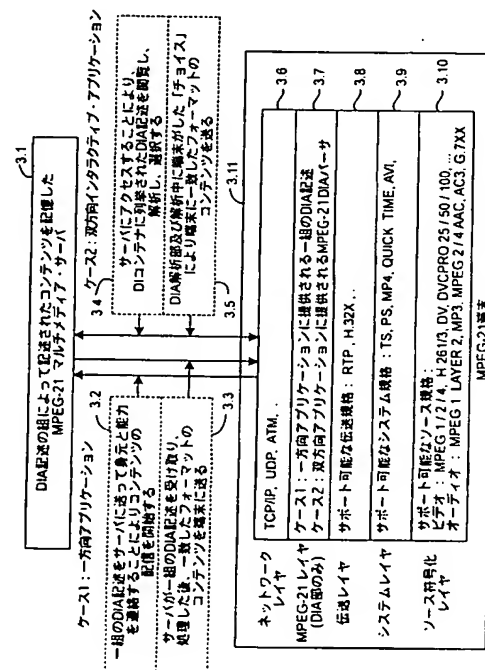 3.1
DIA記述の組によって記述されたコンテンツを記憶した
MPEG-21 マルチメディア・サーバ
ケース1：一方向アプリケーション
3.2
一組のDIA記述をサーバに送って身元と能力
を連絡することによりコンテンツの
配信を開始する
サーバが一組のDIA記述を受け取り、
処理した後、一致したフォーマットの
コンテンツを端末に送る
3.3
ケース2：双方向インタラクティブ・アプリケーション
3.4
サーバにアクセスすることにより、
DIコンテナに列挙されたDIA記述を閲覧し、
解析し、選択する
DIA解析部及び解析中に端末がした「チョイス」
により端末に一致したフォーマットの
コンテンツを送る
3.5
3.11
ネットワーク
レイヤ
TCP/IP, UDP, ATM, . .
3.6
MPEG-21 レイヤ
(DIA部のみ)
ケース1：一方向アプリケーションに提供される一組のDIA記述
ケース2：双方向アプリケーションに提供されるMPEG-21DIAパーサ
3.7
伝送レイヤ
サポート可能な伝送規格： RTP, H.32X, . .
3.8
システムレイヤ
サポート可能なシステム規格： TS, PS, MP4, QUICK TIME, AVI,
3.9
ソース符号化
レイヤ
サポート可能なソース規格：
ビデオ： MPEG 1 / 2 / 4, H 261/3, DV, DVCPRO 25 / 50 / 100, ...
オーディオ： MPEG 1 LAYER 2, MP3, MPEG 2 / 4 AAC, AC3, G.7XX
3.10
MPEG-21端末